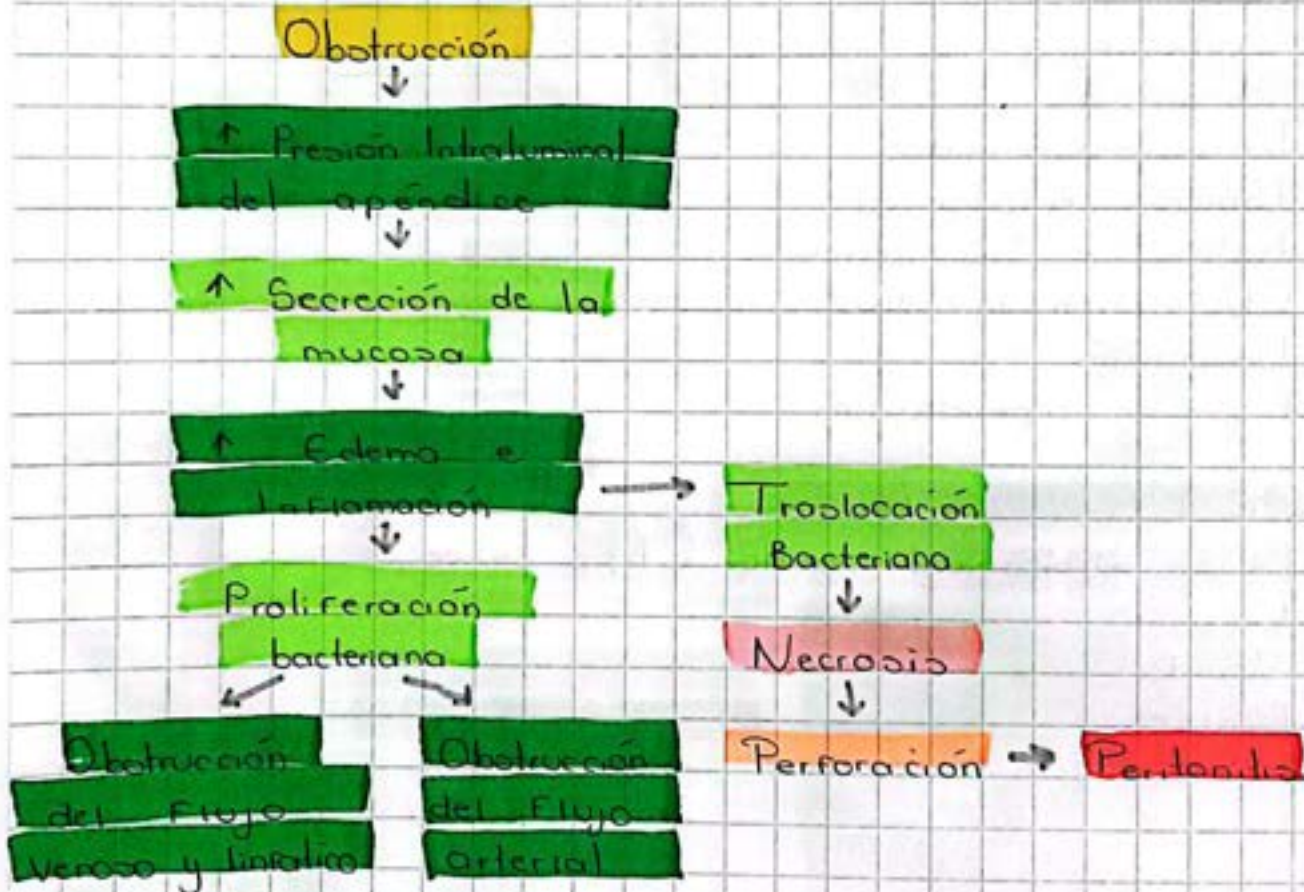 Obstrucción
↓
↑ Presión Intraluminal
del apéndice
↓
↑ Secreción de la
mucosa
↓
↑ Edema e
Inflamación
→
Traslocación
Bacteriana
↓
Proliferación
bacteriana
Necrosis
↓
Obstrucción
del Flujo
venoso y linfatico
Obstrucción
del Flujo
arterial
Perforación → Peritonitis